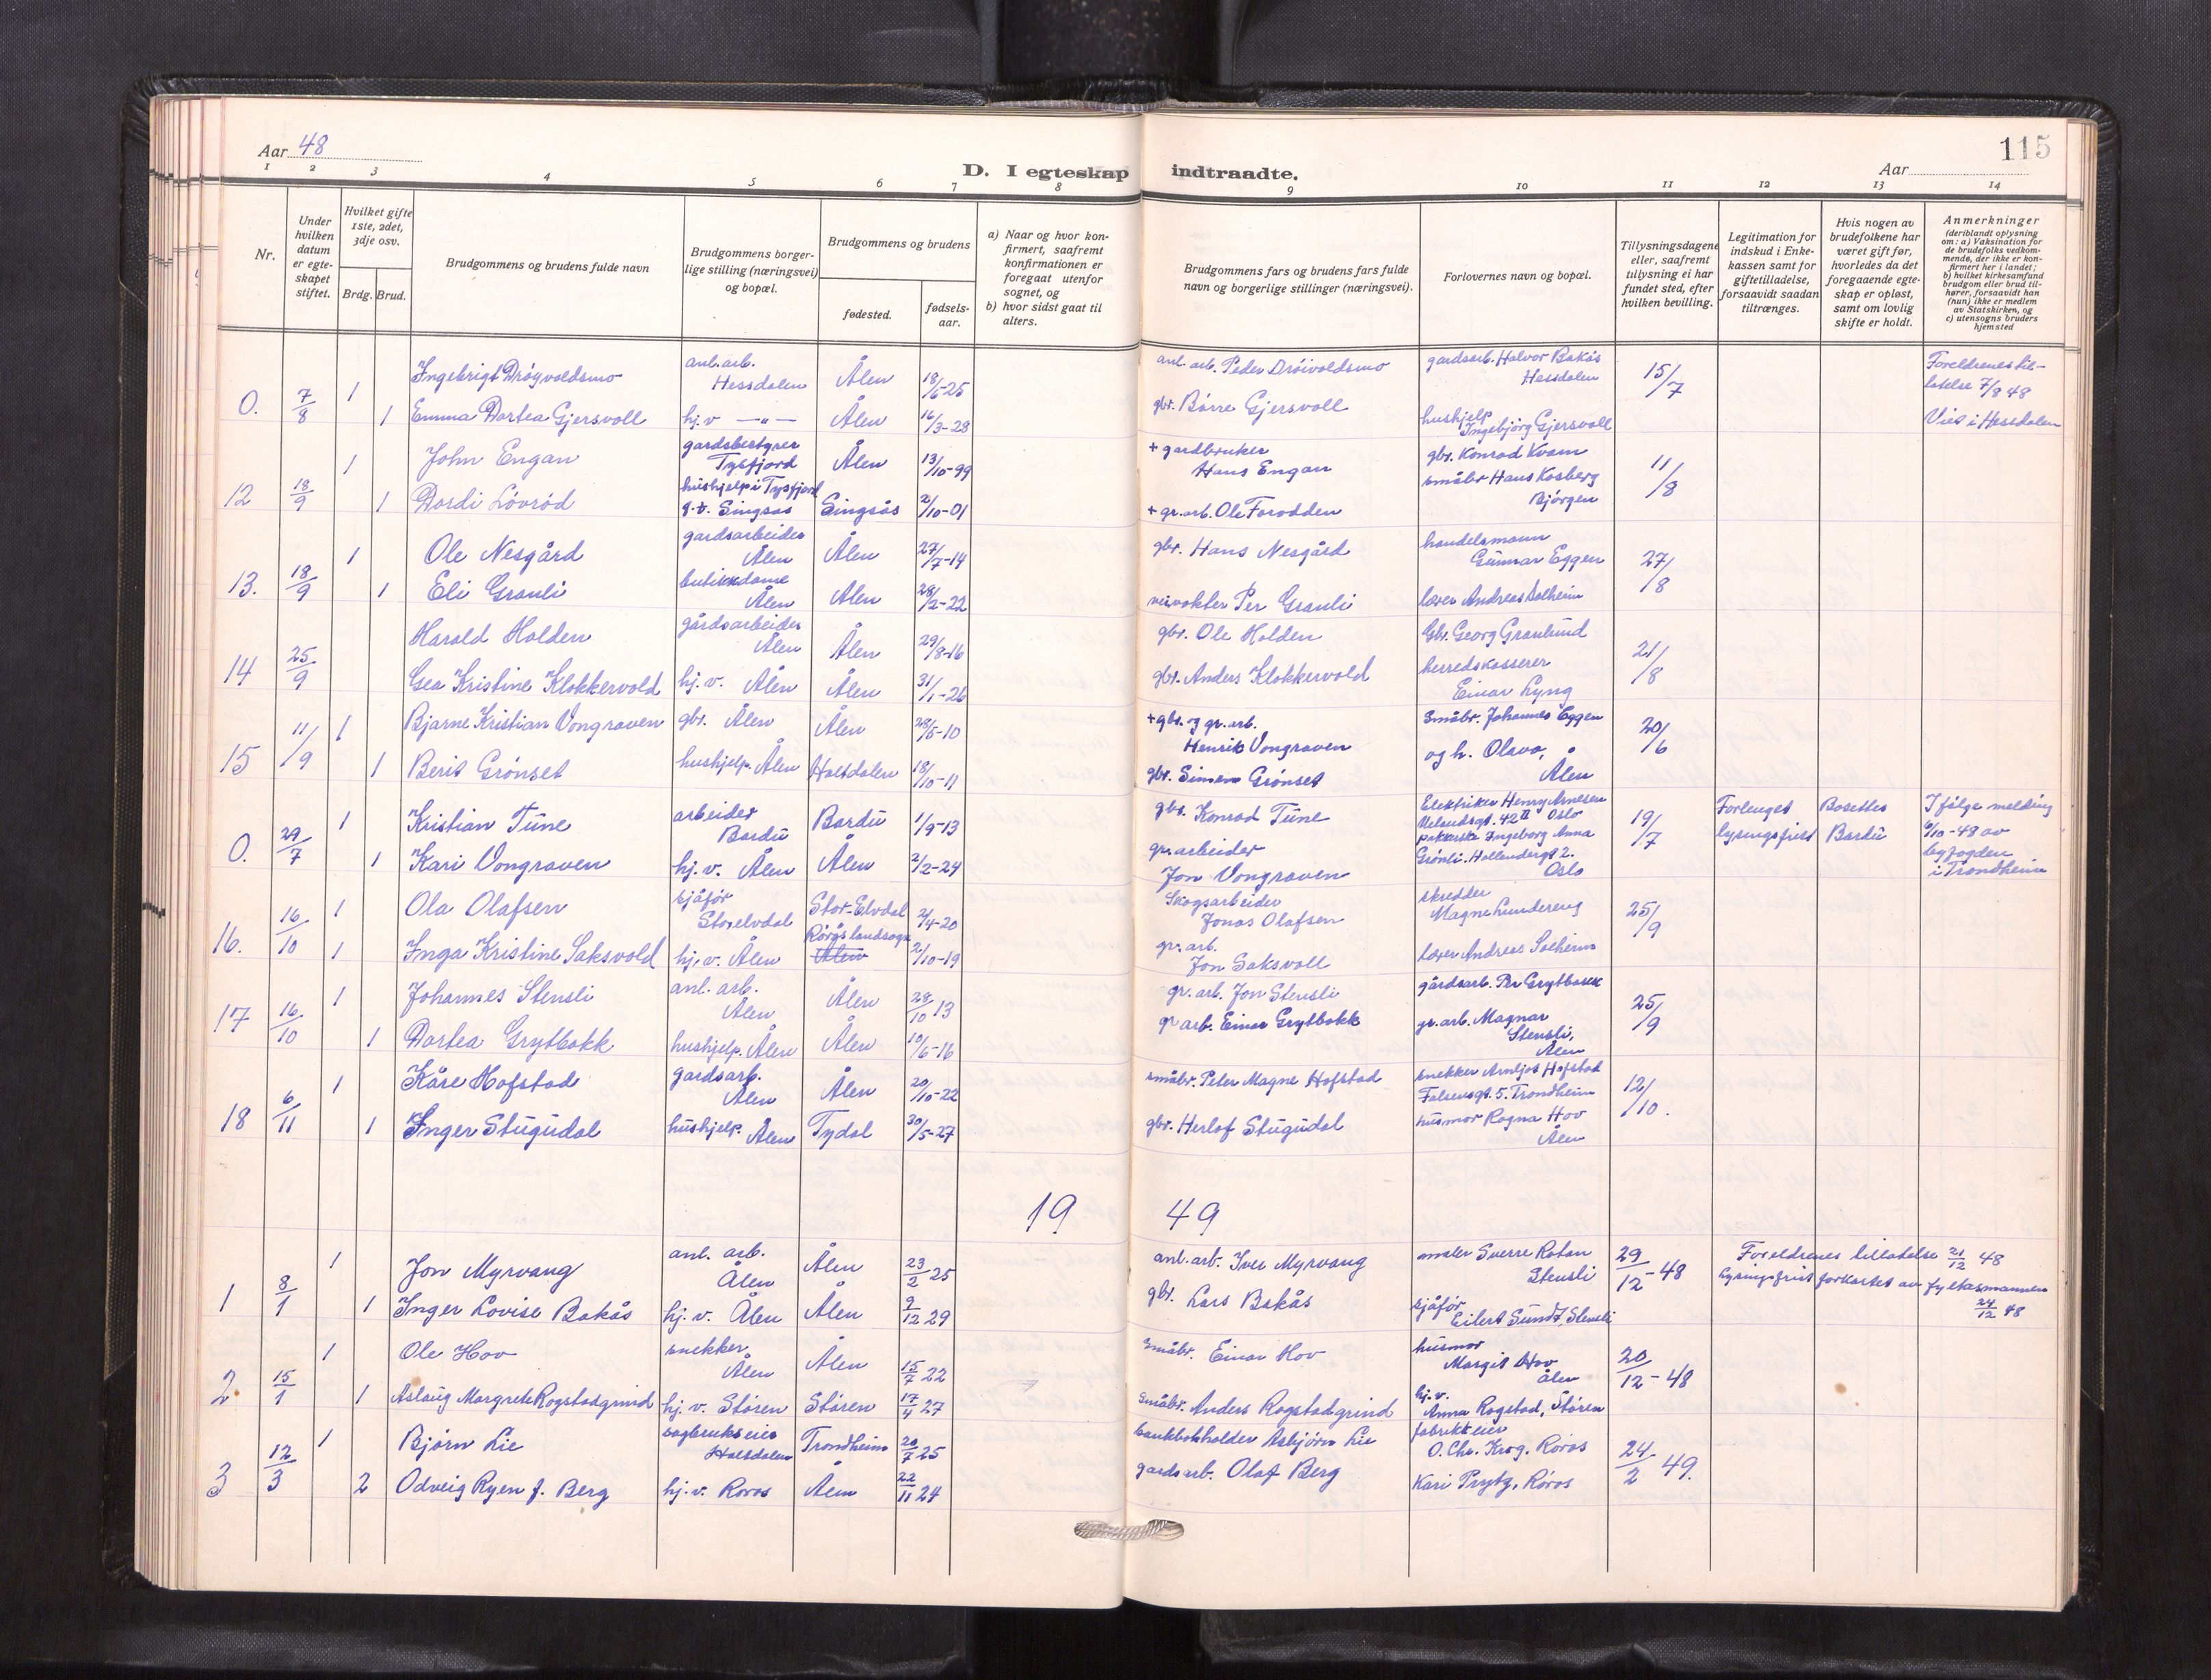 Aar 48
D. I egteskap indtraadte.
Aar
115
1 2 3 4 5 6 7 8 9 10 11 12 13 14
Nr.
Under hvilken datum er egteskapet stiftet.
Hvilket gifte 1ste, 2det, 3dje osv.
Brdg. Brud.
Brudgommens og brudens fulde navn
Brudgommens borgerlige stilling (næringsvei) og bopæl.
Brudgommens og brudens
fødested.
fødselsaar.
a) Naar og hvor konfirmert, saafremt konfirmationen er foregaat utenfor sognet, og
b) hvor sidst gaat til alters.
Brudgommens fars og brudens fars fulde navn og borgerlige stillinger (næringsvei).
Forlovernes navn og bopæl.
Tillysningsdagene eller, saafremt tillysning ei har fundet sted, efter hvilken bevilling.
Legitimation for indskud i Enkekassen samt for giftetilladelse, forsaavidt saadan tiltrænges.
Hvis nogen av brudefolkene har været gift før, hvorledes da det foregaaende egteskap er opløst, samt om lovlig skifte er holdt.
Anmerkninger (deriblandt oplysning om: a) Vaksination for de brudefolks vedkommende, der ikke er konfirmert her i landet; b) hvilket kirkesamfund brudgom eller brud tilhører, forsaavidt han (hun) ikke er medlem av Statskirken, og c) utensogns bruders hjemsted
0. 7/8 1 Ingebrigt Drøyvoldsmo anl.arb. Hessdalen Ålen 18/6-25 anl. arb. Peder Drøivoldsmo gardsarb. Halvor Bakås Hessdalen 15/7 Foreldrenes tillatelse 7/8 48
1 Emma Dortea Gjersvoll hj.v —"— Ålen 16/3-28 gbr. Børre Gjersvoll hushjelp Ingebjørg Gjersvoll Viet i Hessdalen
12 18/9 1 John Engan gardsbestyrer Tysfjord Ålen 13/10-99 + gardbruker Hans Engan gbr. Konrad Kvam 11/8
1 Dordi Løvrød hushjelp i Tysfjord Singsås Singsås 2/10-01 + gr.arb. Ole Forodden småbr Hans Kosberg Bjørgen
13. 18/9 1 Ole Nesgård gardsarbeider Ålen Ålen 27/7-14 gbr. Hans Nesgård handelsmann Gunnar Eggen 27/8
1 Eli Granli butikkdame Ålen Ålen 28/2-22 veivokter Per Granli lærer Andreas Solheim
14 25/9 Harald Holden gårdsarbeider Ålen Ålen 29/8-16 gbr. Ole Holden Gbr. Georg Graulund 21/8
Gea Kristine Klokkervold hj.v. Ålen Ålen 31/1-26 gbr. Anders Klokkervold herredskasserer Einar Lyng
15 11/9 1 Bjarne Kristian Vongraven gbr. Ålen Ålen 28/5-10 + gbr. og gr.arb. Henrik Vongraven Småbr. Johannes Eggen 20/6
1 Berit Grønset hushjelp. Ålen Holtdalen 18/10-11 gbr. Simen Grønset og h. Olava, Ålen
0. 29/7 1 Kristian Tune arbeider Bardu Bardu 1/9-13 gbr. Konrad Tune Elektriker Henry Arnesen Uelandsgt. 42 II Oslo 19/7 Forlenget lysingsfrist Bosettes Bardu Ifølge melding 6/10-48 av byfogden i Trondheim
1 Kari Vongraven hj.v. Ålen Ålen 2/2-24 gr.arbeider Jon Vongraven pakkerske Ingeborg Anna Grønli. Hollendergt 2. Oslo
16. 16/10 1 Ola Olafsen sjåfør Storelvdal Stor-Elvdal 2/4-20 Skogsarbeider Jonas Olafsen skredder Magne Lundereng 25/9
1 Inga Kristine Saksvold hj.v. Ålen Rørøs landsogn Ålen 2/10-19 gr.arb. Jon Saksvoll lærer Andreas Solheim
17 16/10 1 Johannes Stensli anl. arb. Ålen Ålen 28/10 13 gr. arb. Jon Stensli gårdsarb. Per Grytbakk 25/9
1 Dortea Grytbakk hushjelp. Ålen Ålen 10/6-16 gr arb. Einar Grytbakk gr.arb. Magnar Stensli, Ålen
18 6/11 1 Kåre Hofstad gardsarb. Ålen Ålen 20/10-22 småbr. Peter Magne Hofstad snekker Arnljot Hofstad Falsensgt. 5. Trondheim 12/10.
1 Inger Stugudal hushjelp. Ålen Tydal 30/5-27 gbr. Herlof Stugudal husmor Ragna Hov Ålen
19 49
1 8/1 1 Jon Myrvang anl. arb. Ålen Ålen 23/2 25 anl. arb. Iver Myrvang maler Sverre Rotan Stensli 29/12-48 Foreldrenes tillatelse 21/12 48
1 Inger Lovise Bakås hj. v. Ålen Ålen 9/12 29 gbr. Lars Bakås sjåfør Eilert Sundt, Stensli Lysingsfrist forkortet av fylkesmannen 24/12 48
2 15/1 1 Ole Hov snekker Ålen Ålen 15/7 22 Småbr. Einar Hov husmor Margit Hov Ålen 20/12-48
1 Aslaug Margrete Rogstadgrind hj. v. Støren Støren 17/4 27 småbr. Anders Rogstadgrind hj. v. Anna Rogstad, Støren
3 12/3 1 Bjørn Lie sagbrukseier Holtdalen Trondheim 20/7 25 bankbokholder Asbjørn Lie fabrikkeier O. Chr. Krog. Røros 24/2 49.
2 Odveig Ryen f. Berg hj. v. Røros Ålen 22/11 24 gards arb. Olaf Berg Kari Prytz, Røros